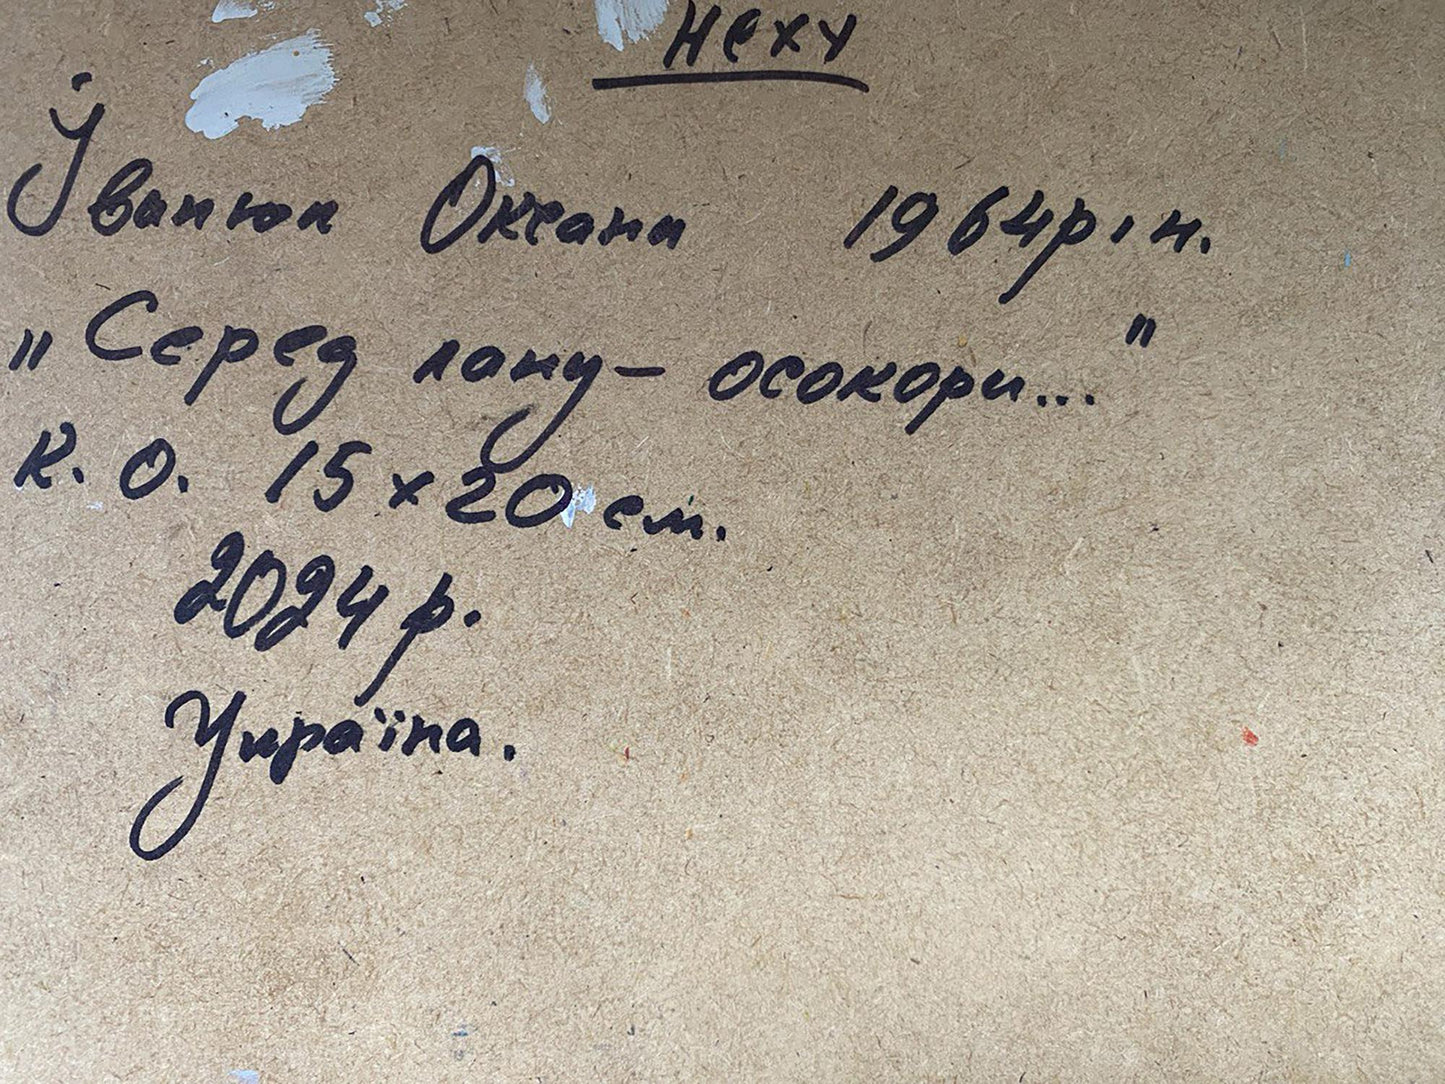 НСХУ
Іванюк Оксана 1964 р. н.
„Серед лану – осокори..."
К. О. 15 х 20 см.
2024 р.
Україна.